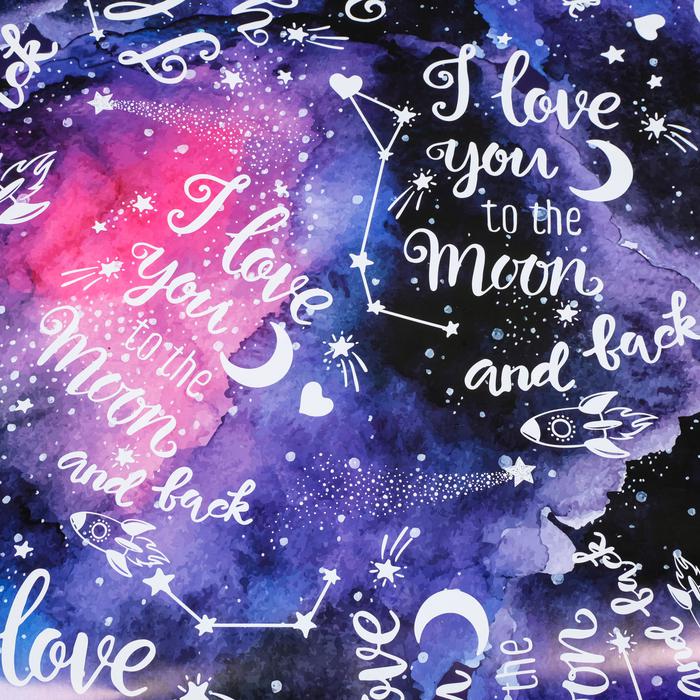 I love
you
to the
Moon
and back
I love
you
to the
Moon
and back
love
love
the
back